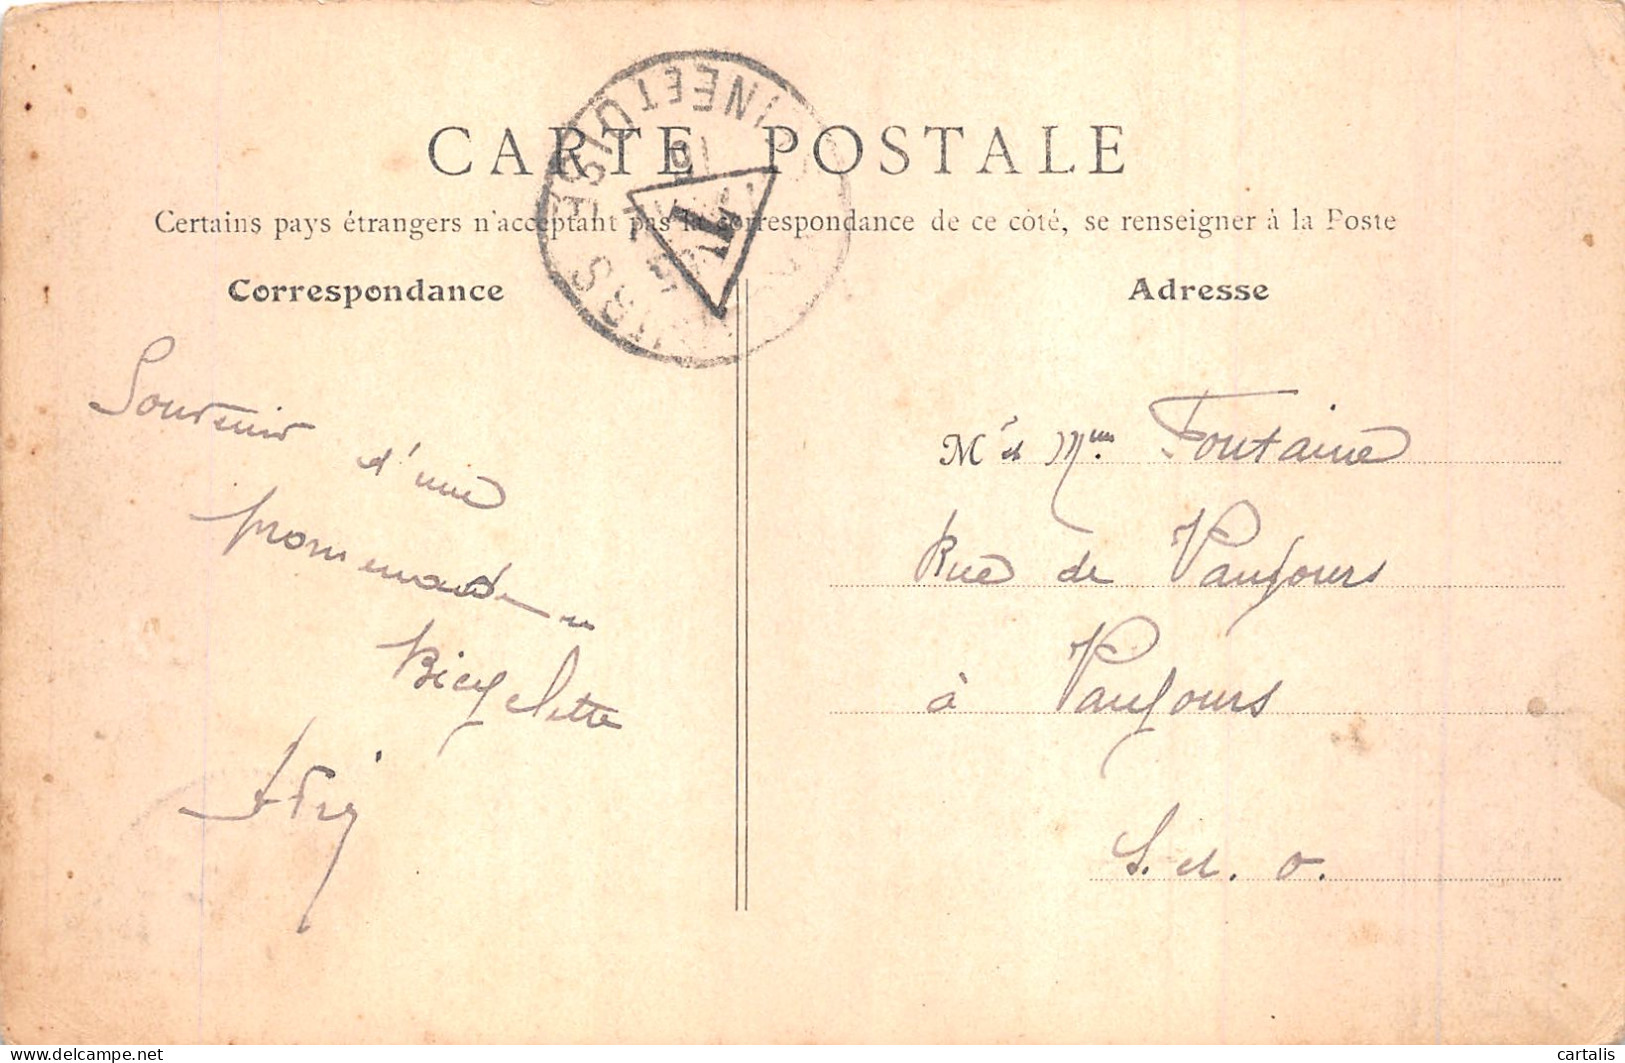 CARTE POSTALE
Certains pays étrangers n'acceptant pas la correspondance de ce côté, se renseigner à la Poste
Correspondance
Souvenir
d'une
promenade en
Bicyclette
Adresse
Mr et Mme Fontaine
Rue de Vaujours
à Vaujours
S. et O.
SEINE ET OISE
T
Delcampe.net
cartalis